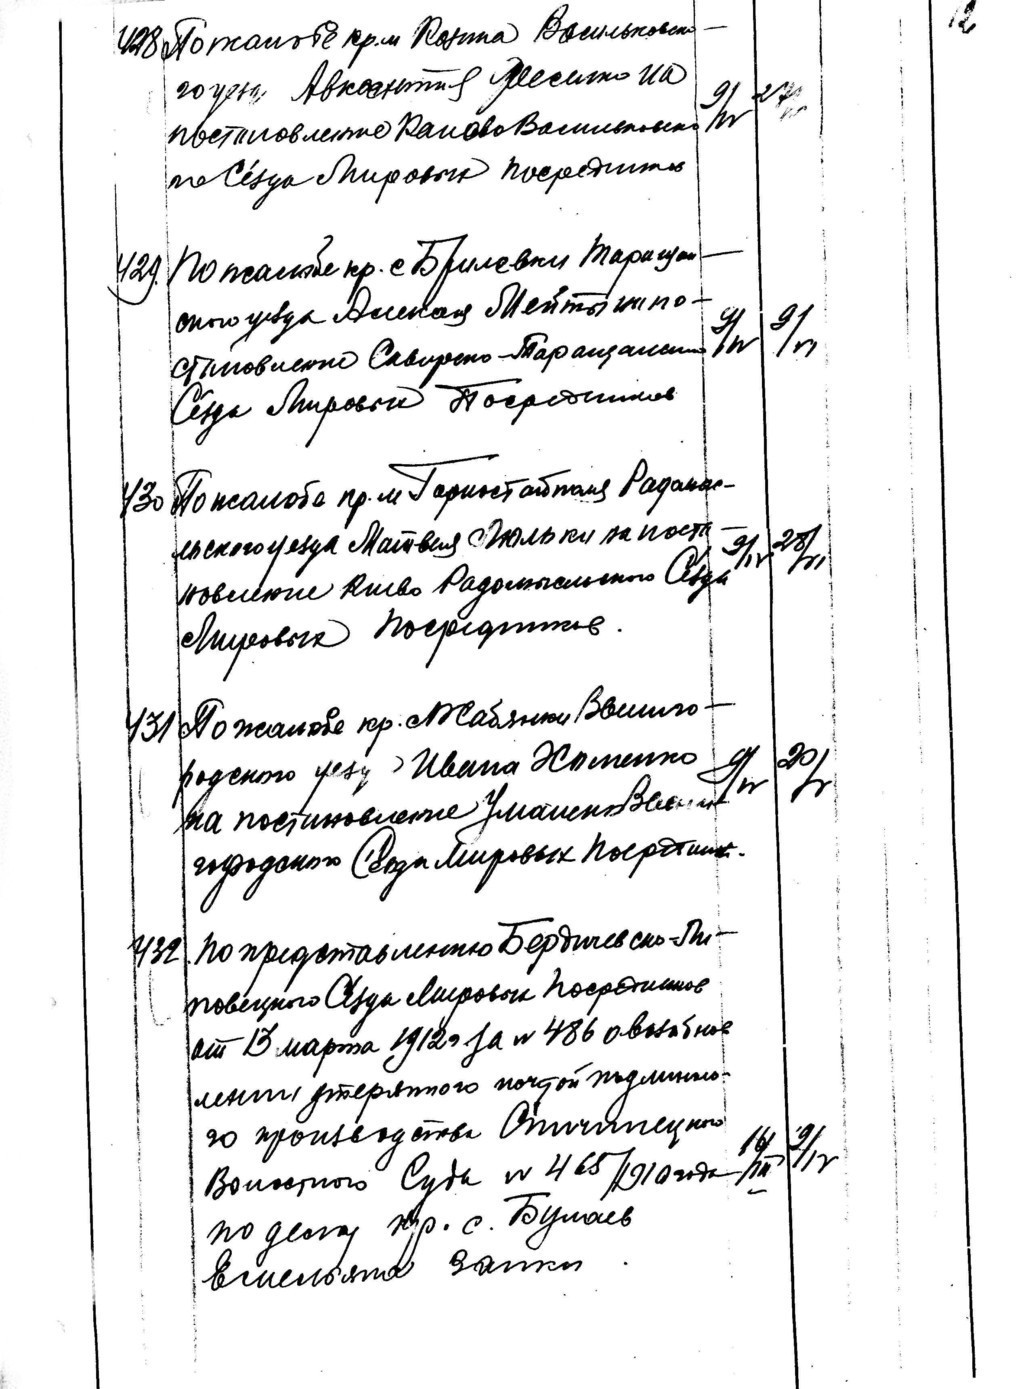 12
428 По жалобе кр. м Рожна Васильковско-
го уезд Авксентия на
постановление Каново Васильковско 9/IV 27
го Съезда Мировых Посредников
429. По жалобе кр. с Брилевки Таращан-
ского уезда Алексея на по- 9/IV 9/VI
становление Сквирско-Таращанского
Съезда Мировых Посредников
430 По жалобе кр. м Горностайполя Радомы-
льского уезда Матвея Люльки на поста- 9/IV 28/VI
новление Киево Радомысльского Съезда
Мировых Посредников.
431 По жалобе кр. с Жабянки Звениго-
родского уезд Ивана Хоменко 9/IV 20/V
на постановление Уманско Звени
городского Съезда Мировых Посредник.
432. По представлению Бердичевско-Ли-
повецкого Съезда Мировых Посредников
от 13 марта 1912 г за № 486 о возобнов
лении утерянного почтой подлинно-
го производства Спичинецкого
Волостного Суда № 465/1910 года 16/III 9/IV
по делу кр. с. Булаев
Емельяна Заики.